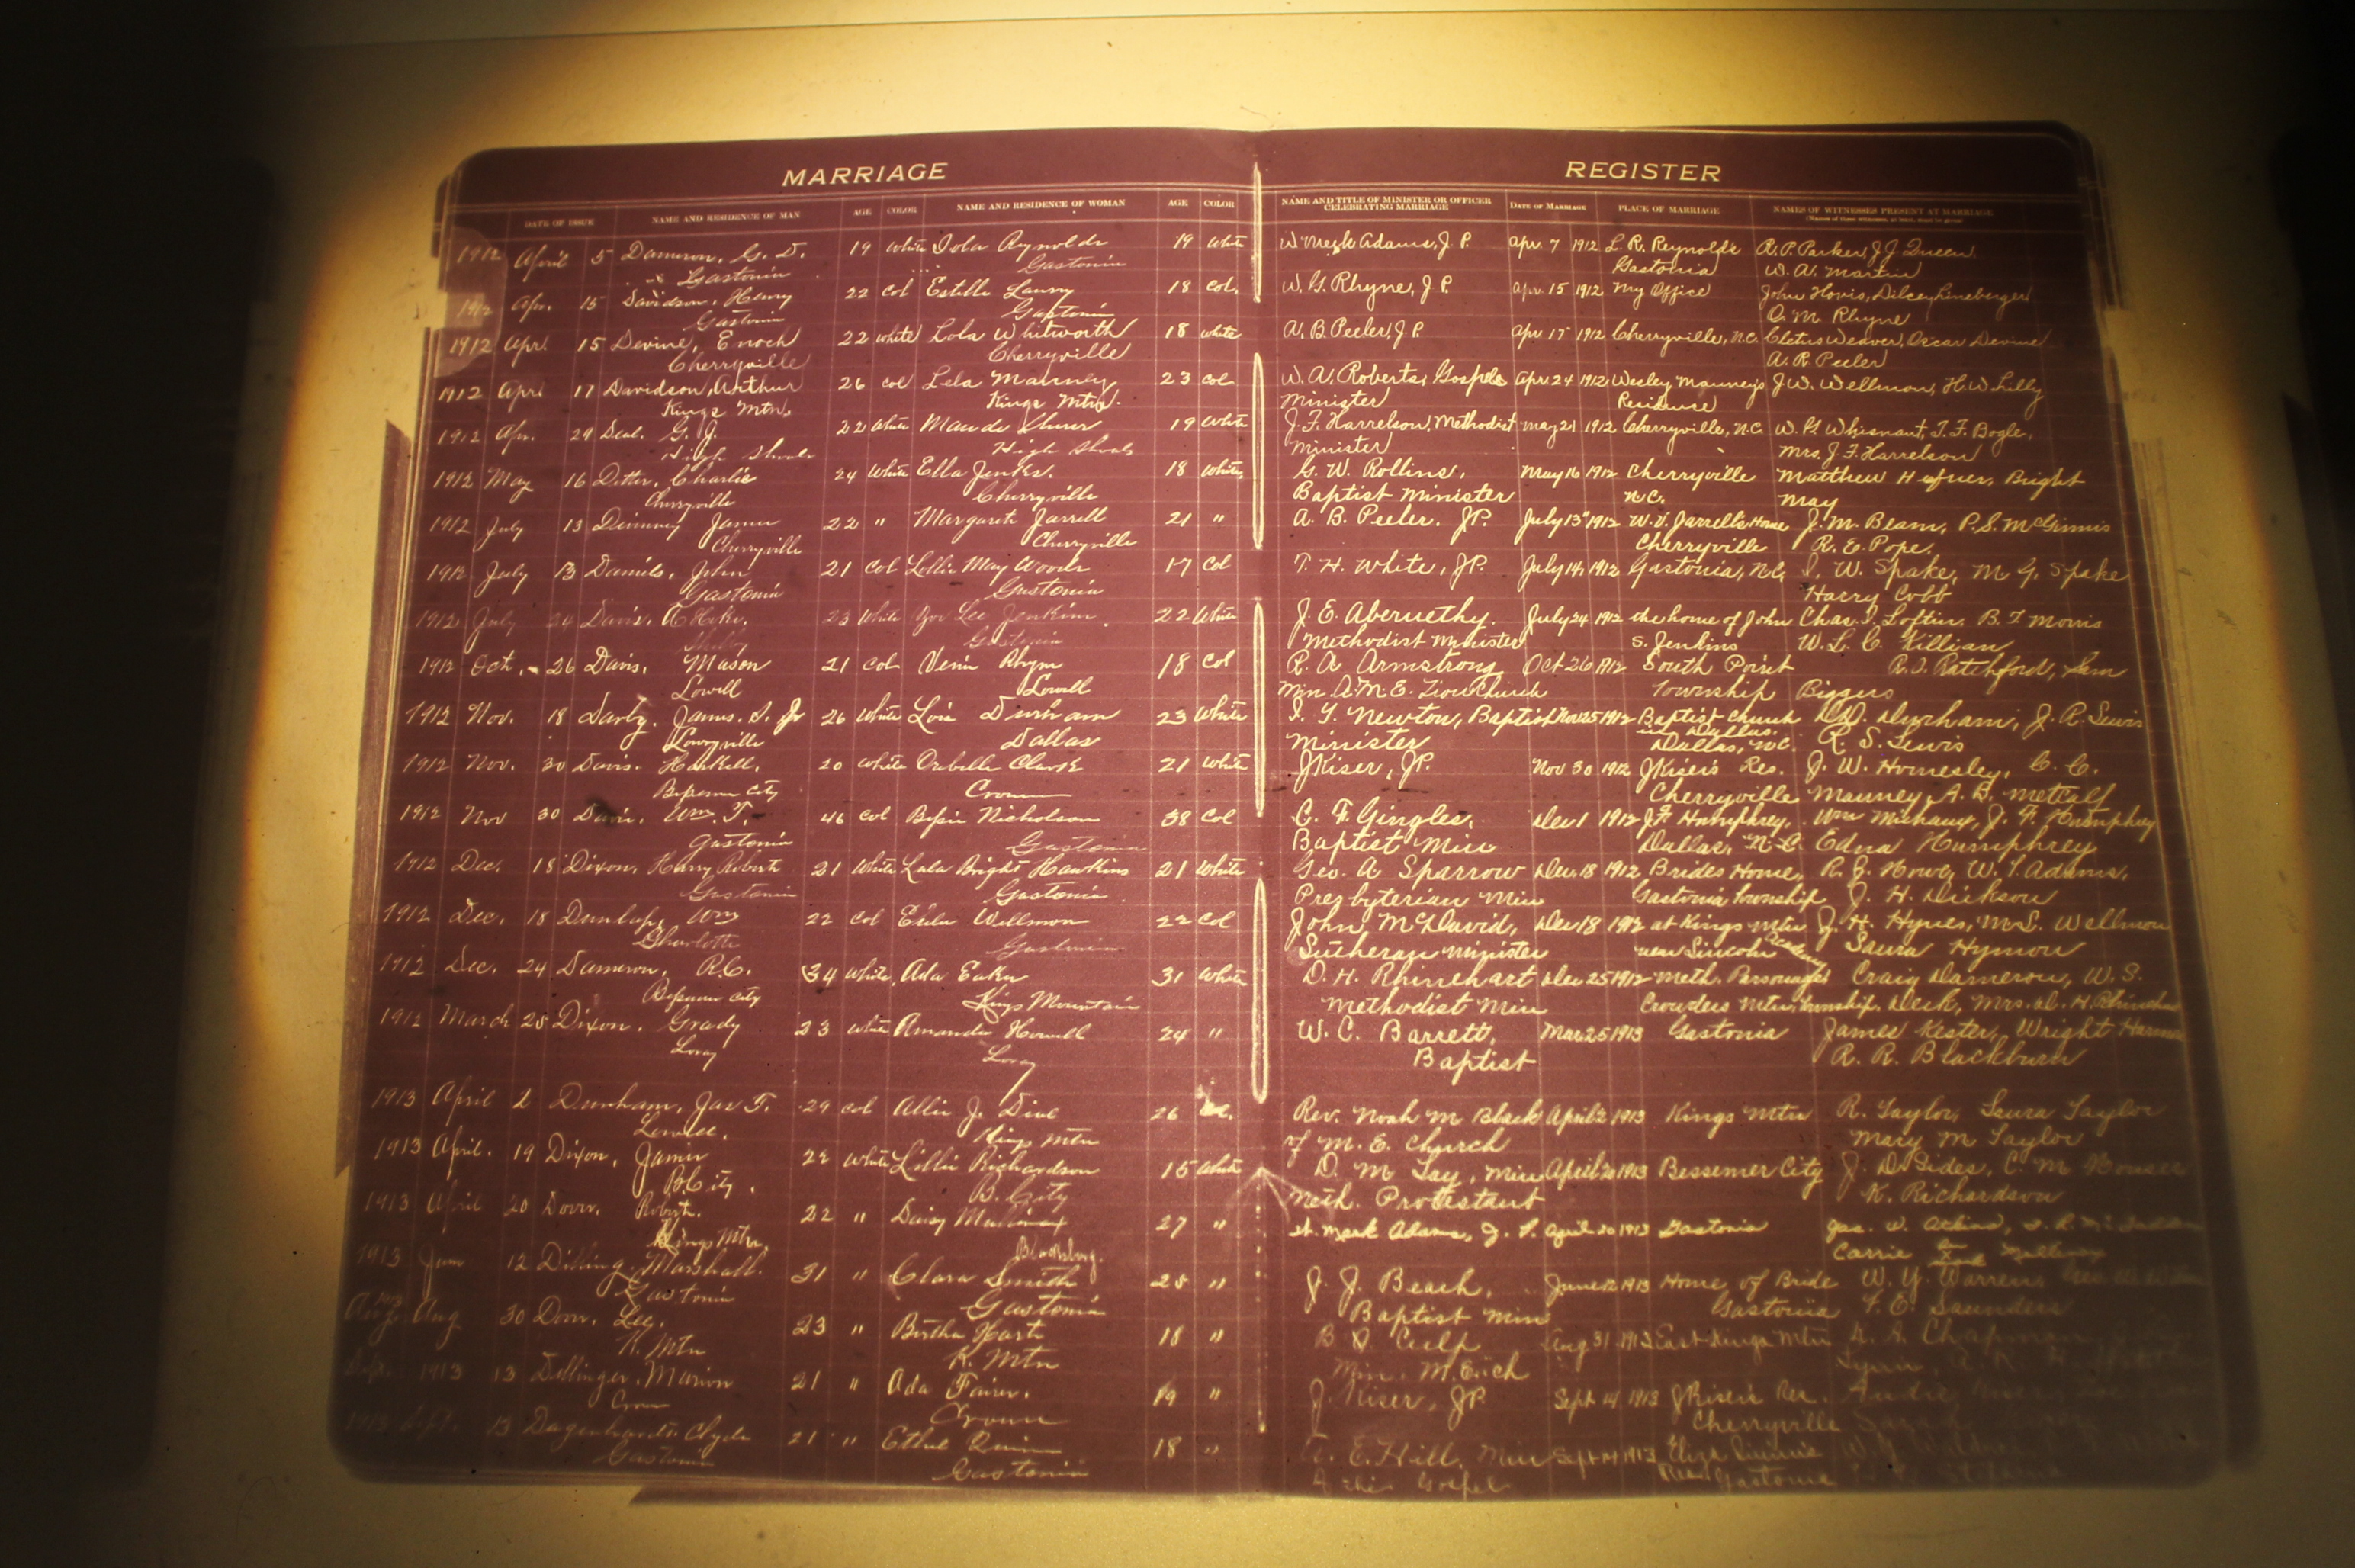 MARRIAGE REGISTER
DATE OF ISSUE NAME AND RESIDENCE OF MAN AGE COLOR NAME AND RESIDENCE OF WOMAN AGE COLOR NAME AND TITLE OF MINISTER OR OFFICER CELEBRATING MARRIAGE DATE OF MARRIAGE PLACE OF MARRIAGE NAMES OF WITNESSES PRESENT AT MARRIAGE
1912 April 5 Dameron, G. D. 19 white Iola Rynolds 19 white W Meek Adams, J. P. Apr. 7 1912 L. R. Reynolds R. P. Parker, J J Queen,
Gastonia Gastonia Gastonia W. A. Martin
1912 Apr. 15 Davidson, Henry 22 col Estelle 18 col. W. G. Rhyne, J P. Apr. 15 1912 My Office John Hovis, Dilcey Lineberger
Gastonia Gastonia O. M. Rhyne
1912 Apr. 15 Devine, Enoch 22 white Lola Whitworth 18 white A. B. Peeler, J P. Apr 17 1912 Cherryville, N.C. Cletus Weaver, Oscar Devine
Cherryville Cherryville A. R Peeler
1912 Apr. 17 Davidson, Arthur 26 col Lela Mauney 23 col W. A. Roberts, Gospel Apr. 24 1912 Wesley Mauney's J. W. Wellmon, H. W Lilly
Kings Mtn. Kings Mtn. Minister Residence
1912 Apr. 29 Deal. G. J. 22 white Maude 19 white J. F. Harrelson, Methodist May 21 1912 Cherryville, N.C. W. P. Whisnant, T. F. Bogle,
High Shoals High Shoals Minister Mrs. J F. Harrelson
1912 May 16 Charlie 24 white Ella 18 white G. W. Rollins, May 16 1912 Cherryville Matthew Hefner, Bright
Cherryville Cherryville Baptist Minister N.C. May
1912 July 13 James 22 " Margaret Jarrell 21 " A. B. Peeler, JP. July 13 1912 W. V. Jarrell's Home J. M. Beam, P. S. McGinnis
Cherryville Cherryville Cherryville R. E. Pope,
1912 July 13 Daniels, John 21 col Lottie May Woods 17 col T. H. White, JP. July 14, 1912 Gastonia, N.C. I. W. Spake, M G. Spake
Gastonia Gastonia Harry Cobb
1912 July 24 Davis, 23 white Lee Jenkins 22 white J. E. Abernethy. July 24 1912 the home of John Chas. I. Loftin, B. T Morris
Shelby Gastonia Methodist Minister S. Jenkins W. L. C. Killian
1912 Oct. 26 Davis, Mason 21 col Rhyne 18 col R. A Armstrong Oct 26 1912 South Point R. A. Ratchford, Sam
Lowell Lowell Min. A. M. E. Zion Church Township Biggers
1912 Nov. 18 Darby, James. Jr 26 white Lois Durham 23 white Newton, Baptist Nov 25 1912 Baptist church in Dallas. Durham, J. R. Lewis
Lowryville Dallas Minister Dallas, N.C. R. S. Lewis
1912 Nov. 30 Davis. Haskell, 20 white Clark 21 white J Kiser, JP. Nov 30 1912 J Kiser's Res. J. W. Homesley, C. C.
Bessemer City Crouse Cherryville Mauney, A. B. Metcalf
1912 Nov 30 Davis, Wm. T. 46 col Bessie Nicholson 38 col C. F Gingles, Dec 1 1912 J. F. Humphrey, Wm Michaux, J. F. Humphrey
Gastonia Gastonia Baptist Min Dallas, N.C. Edna Humphrey
1912 Dec. 18 Dixon, Harry Robert 21 white Lula Bright Hawkins 21 white Geo. A Sparrow Dec. 18 1912 Brides Home, R. J. Howe, W. T. Adams,
Gastonia Gastonia Presbyterian Min Gastonia Township J. H. Dickson
1912 Dec. 18 Dunlap, Wm 22 col Eula Wellmon 22 col John McDavid, Dec 18 1912 at Kings Mtn J. H. Hynes, M. S. Wellmon
Charlotte Gastonia Lutheran Minister near Lincoln Laura Hymon
1912 Dec. 24 Dameron, R.C. 34 white Ada Eaker 31 white D. H. Rhinehart Dec 25 1912 Meth. Parsonage Craig Dameron, W. S.
Bessemer City Kings Mountain Methodist Min Crowders Mtn. Township. Deck, Mrs. D. H. Rhinehart
1912 March 25 Dixon. Grady 23 white Amanda Howell 24 " W. C. Barrett, Mar. 25 1913 Gastonia James Kester, Wright
Loray Loray Baptist R. R. Blackburn
1913 April 2 Dunham, Jas F. 29 col Allie J. 26 Rev. Noah M Black April 2 1913 Kings Mtn R. Taylor, Laura Taylor
Lowell. Kings Mtn of M. E. Church Mary M Taylor
1913 April. 19 Dixon, James 22 white Lillie Richardson 15 white D. M Loy, Min April 20 1913 Bessemer City J. D. Sides, C. M Houser
B. City. B. City Meth. Protestant K. Richardson
1913 April 20 Dover. Robert. 22 " Daisy Mullinax 27 " Mark Adams, J. P. April 20 1913 Gastonia Jas. W. Atkins,
Kings Mtn. Blacksburg. Carrie
1913 June 12 Dilling, Marshall. 31 " Clara Smith 25 " J. J. Beach, June 12 1913 Home of Bride W. Y. Warren,
Gastonia Gastonia Baptist Min Gastonia F. E. Saunders
Aug 30 Dover, Lee. 23 " Bertha Hart 18 " B. A. Culp Aug 31 1913 East Kings Mtn A. Chapman
K. Mtn K. Mtn Min. M. E. Ch
Sept. 1913 13 Dellinger, Marion 21 " Ada 19 " J. Kiser, JP Sept 14 1913 J Kiser's Res.
Crouse Crouse Cherryville
1913 Sept. 13 Dagenhardt, Clyde 21 " Ethel 18 " E. Hill, Min Sept 14 1913 Eliza
Gastonia Gastonia Gospel Res. Gastonia